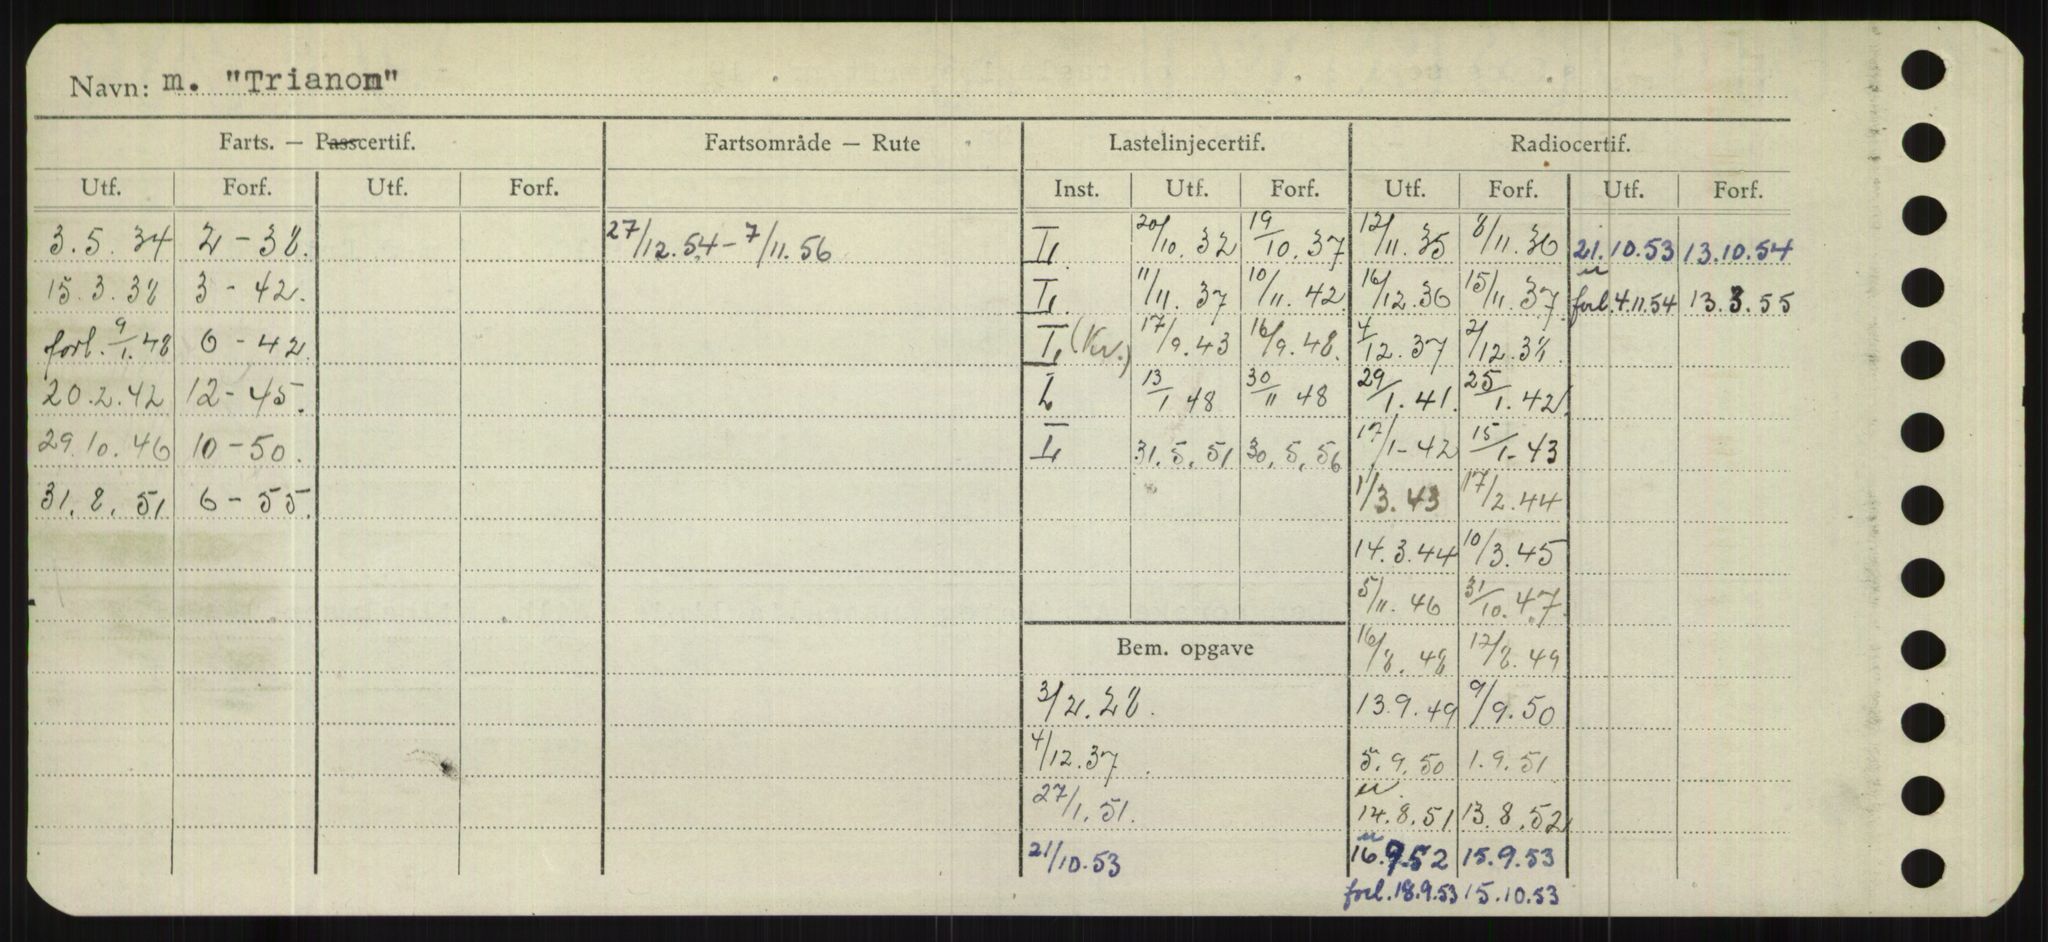 Navn: m. "Trianon"
Farts. — Passcertif. Fartsområde — Rute Lastelinjecertif. Radiocertif.
Utf. Forf. Utf. Forf. Inst. Utf. Forf. Utf. Forf. Utf. Forf.
3.5.34 2-38. 27/12.54-7/11.56 20/10.32 19/10.37 12/11.35 8/11.36 21.10.53 13.10.54
15.3.38 3-42. 11/11.37 10/11.42 16/12.36 15/11.37 forl.4.11.54 13.3.55
forl. 9/1.48 6-42. (Kv.) 17/9.43 16/9.48. 4/12.37 2/12.38.
20.2.42 12-45. 13/1 48 30/11 48 29/1.41. 25/1.42.
29.10.46 10-50. 31.5.51 30.5.56 17/1-42 15/1-43
31.8.51 6-55. 1/3.43 17/2.44
14.3.44 10/3.45
5/11.46 31/10.47.
Bem. opgave 16/8.48 17/8.49
3/2.28. 13.9.49 9/9.50
4/12.37 5.9.50 1.9.51
27/1.51. 14.8.51 13.8.52
21/10.53 16.9.52 15.9.53
forl.18.9.53 15.10.53